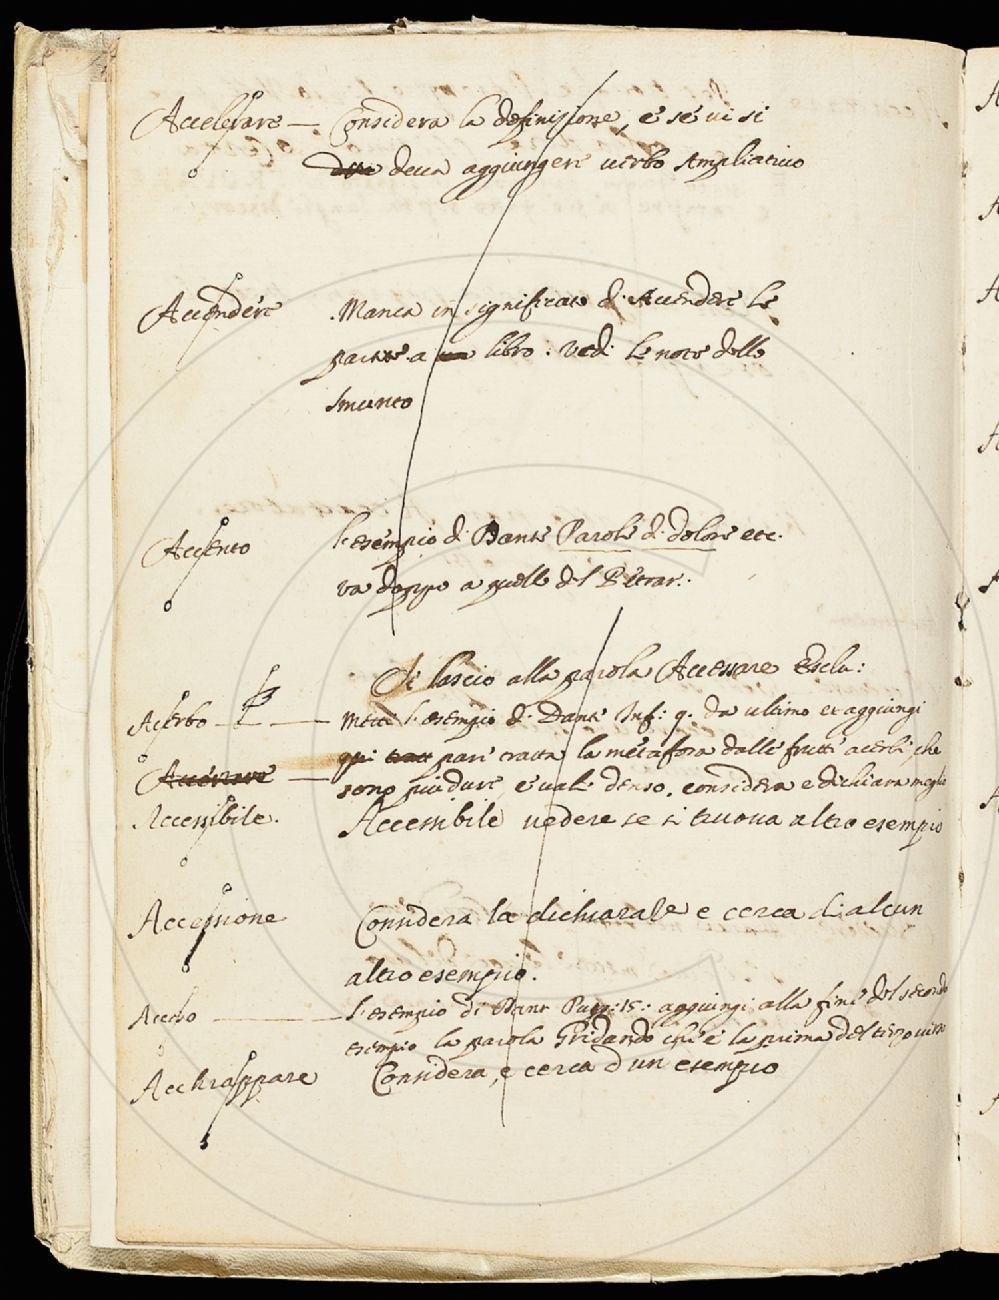 Accelerare — Considera la definizione, e se vi si
deva aggiungere verbo Ampliativo
Accendere Manca in significato di Accendere le
partite a libro. Vedi le note dello
Smunto
Accento L'esempio di Dante Parole di dolore etc.
va doppo a quello del Petrar:
Si lascio alla parola Accessare Esclu:
Acerbo — Metti l'esempio di Dante Inf: 9. da ultimo et aggiungi
qui pare tratta la metafora dalle frutte acerbe, che
Accerare — sono piu dure, e vale denso. considera e dichiara meglio
Accessibile. Accessibile vedere se si truova altro esempio
Accessione Considera la dichiaraze e cerca di alcun
altro esempio.
Acceso — L'esempio di Dant Purg: 15: aggiungi alla fine del secondo
esempio la parola Gridando che è la prima del terzo verso
Acchiappare Considera, e cerca d'un esempio